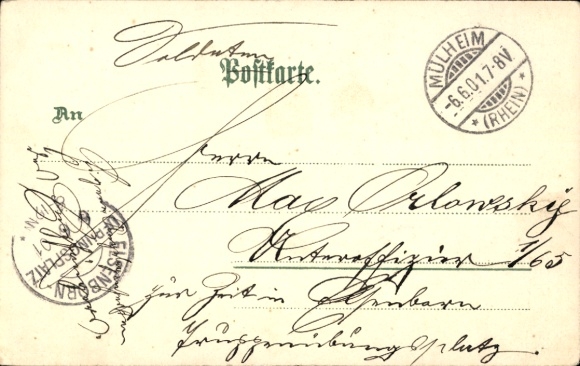 Soldaten
Postkarte.
MÜLHEIM
-6.6.01.7-8V
* (RHEIN) *
An
Herrn
Max Orlowsky
Unteroffizier 1/65
zur Zeit in Elsenborn
Truppenübungsplatz.
ELSENBORN
ÜBUNGSPLATZ